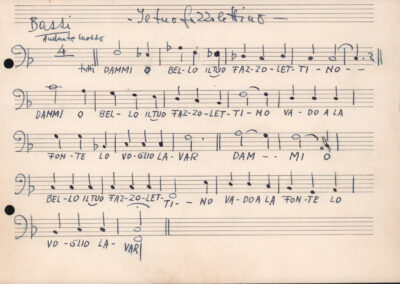 Bassi - Il tuo fazzolettino -
Andante mosso
4
tutti DAMMI O BEL-LO IL TUO FAZ-ZO-LET-TI-NO--
DAMMI O BEL-LO IL TUO FAZ-ZO-LET-TI-NO VA-DO A LA
FON-TE LO VO-GLIO LA-VAR DAM--MI O
BEL-LO IL TUO FAZ-ZO-LET-TI--NO VA-DO A LA FON-TE LO
VO-GLIO LA-VAR